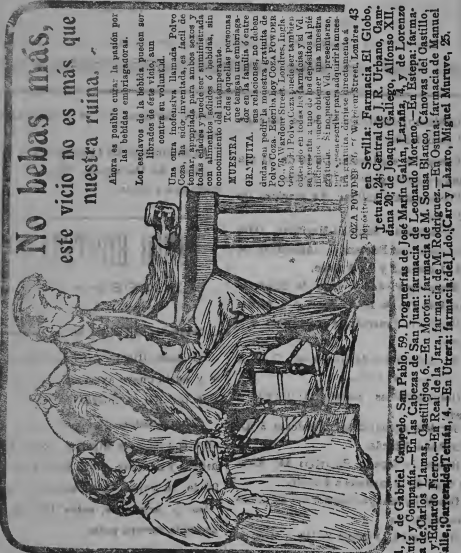 No bebas más,
este vicio no es más que
nuestra ruina.
Ahora es posible curar la pasión por
las bebidas embriagadoras.
Los esclavos de la bebida pueden ser
librados de éste vicio, aun
contra su voluntad.
Una cura inofensiva llamada Polvo
Coza, ha sido inventada, es fácil de
tomar, apropiada para ambos sexos y
todas edades y puede ser suministrada
con alimentos sólidos ó bebidas, sin
conocimiento del intemperante.
MUESTRA
GRATUITA.
Todas aquellas personas
que tengan un embriaga-
dor en la familia ó entre
sus relaciones, no deben
dudar en pedir la muestra gratuita de
Polvo Coza. Escriba hoy COZA POWDER
CO., 76 Wardour Street, Londres, Ingla-
terra. El Polvo Coza puede ser tambien
obtenido en todas las farmacias y si Vd.
se presenta á uno de los depósitos al pié
indicados puede obtener una muestra
gratuita. Si no puede Vd. presentarse,
COZA POWDER CO., 76 Wardour Street, Londres 43
Depósitos en Sevilla: Farmacia El Globo,
Tetuán 24, Farmacia de Rafael
dana 20, de Joaquín Gallego, Alfonso XII
y de Gabriel Campelo, San Pablo, 59, Droguerías de José Marín Galán, Laraña, 4, y de Lorenzo
Compañía.—En las Cabezas de San Juan: farmacia de Leonardo Moreno.—En Estepa: farma-
de Carlos Llamas, Castillejos, 6.—En Morón: farmacia de M. Sousa Blanco, Cánovas del Castillo,
y Eduardo Fierro.—En Real de la Jara, farmacia de M. Rodríguez.—En Osuna: farmacia de Manuel
alle, Carrera de Tetuán,—En Utrera: farmacia del Ldo. Caro y Lázaro, Miguel Murube, 25.